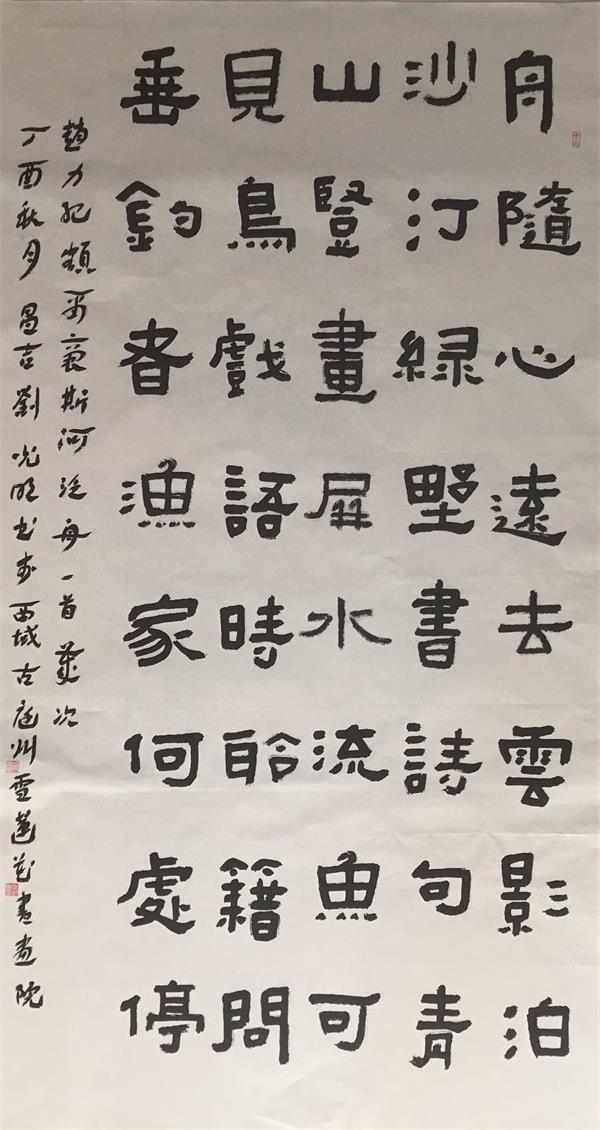 舟隨心遠去雲影泊
沙汀緑野書詩句青
山豎畫屏水流魚可
見鳥戲語時籍問
垂釣者漁家何處停
趙力紀額爾齊斯河泛舟一首歲次
丁酉秋月昌吉劉光明書於西域古庭州雪蓮花書畫院